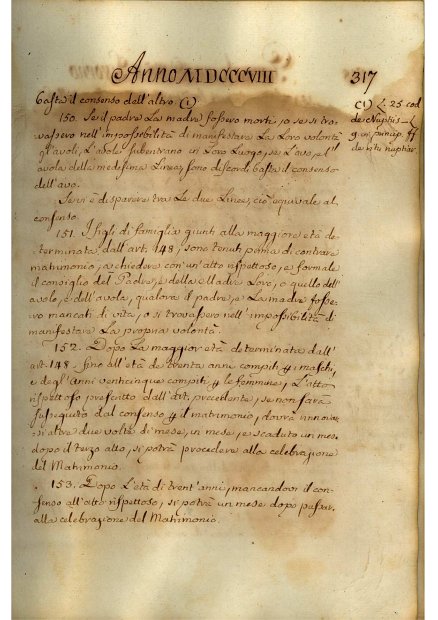 Anno MDCCCVIII 317
basta il consenso dell'altro (1)
150. Se il padre La madre fossero morti, o se si tro-
vassero nell'impossibilità di manifestare La Loro volontà
gl'avoli, L'avole subentrano in Loro Luogo, se L'avo, e l'
avola della medesima Linea, sono discordi basta il consenso
dell'avo.
Se vi è disparere tra Le due Linee, ciò equivale al
consenso.
151. I figli di famiglia giunti alla maggiore età de-
terminata dall'art. 148, sono tenuti prima di contrare
matrimonio, a chiedere con un'atto rispettoso, e formale
il consiglio del Padre, e della Madre Loro, o quello dell'
avolo, e dell'avola, qualora il padre, e La madre fosse-
ro mancati di vita, o si trovassero nell'impossibilità di
manifestare La propria volontà.
152. Dopo La maggior età determinata dall'
art. 148. fino all'età de trenta anni compiti p i maschi,
e degl'anni venticinque compiti p le femmine, L'atto
rispettoso prescritto dall'art. precedente, se non sarà
susseguito dal consenso p il matrimonio, dovrà rinnovar-
si altre due volte di mese, in mese, e scaduto un mese
dopo il terzo atto, si potrà procedere alla celebrazione
del Matrimonio.
153. Dopo L'età di trent'anni, mancandovi il con-
senso all'atto rispettoso, si potrà un mese dopo passar
alla celebrazione del Matrimonio.
(1) L. 25 cod
de Nuptiis L
9. in princip. ff
de ritu nuptiar